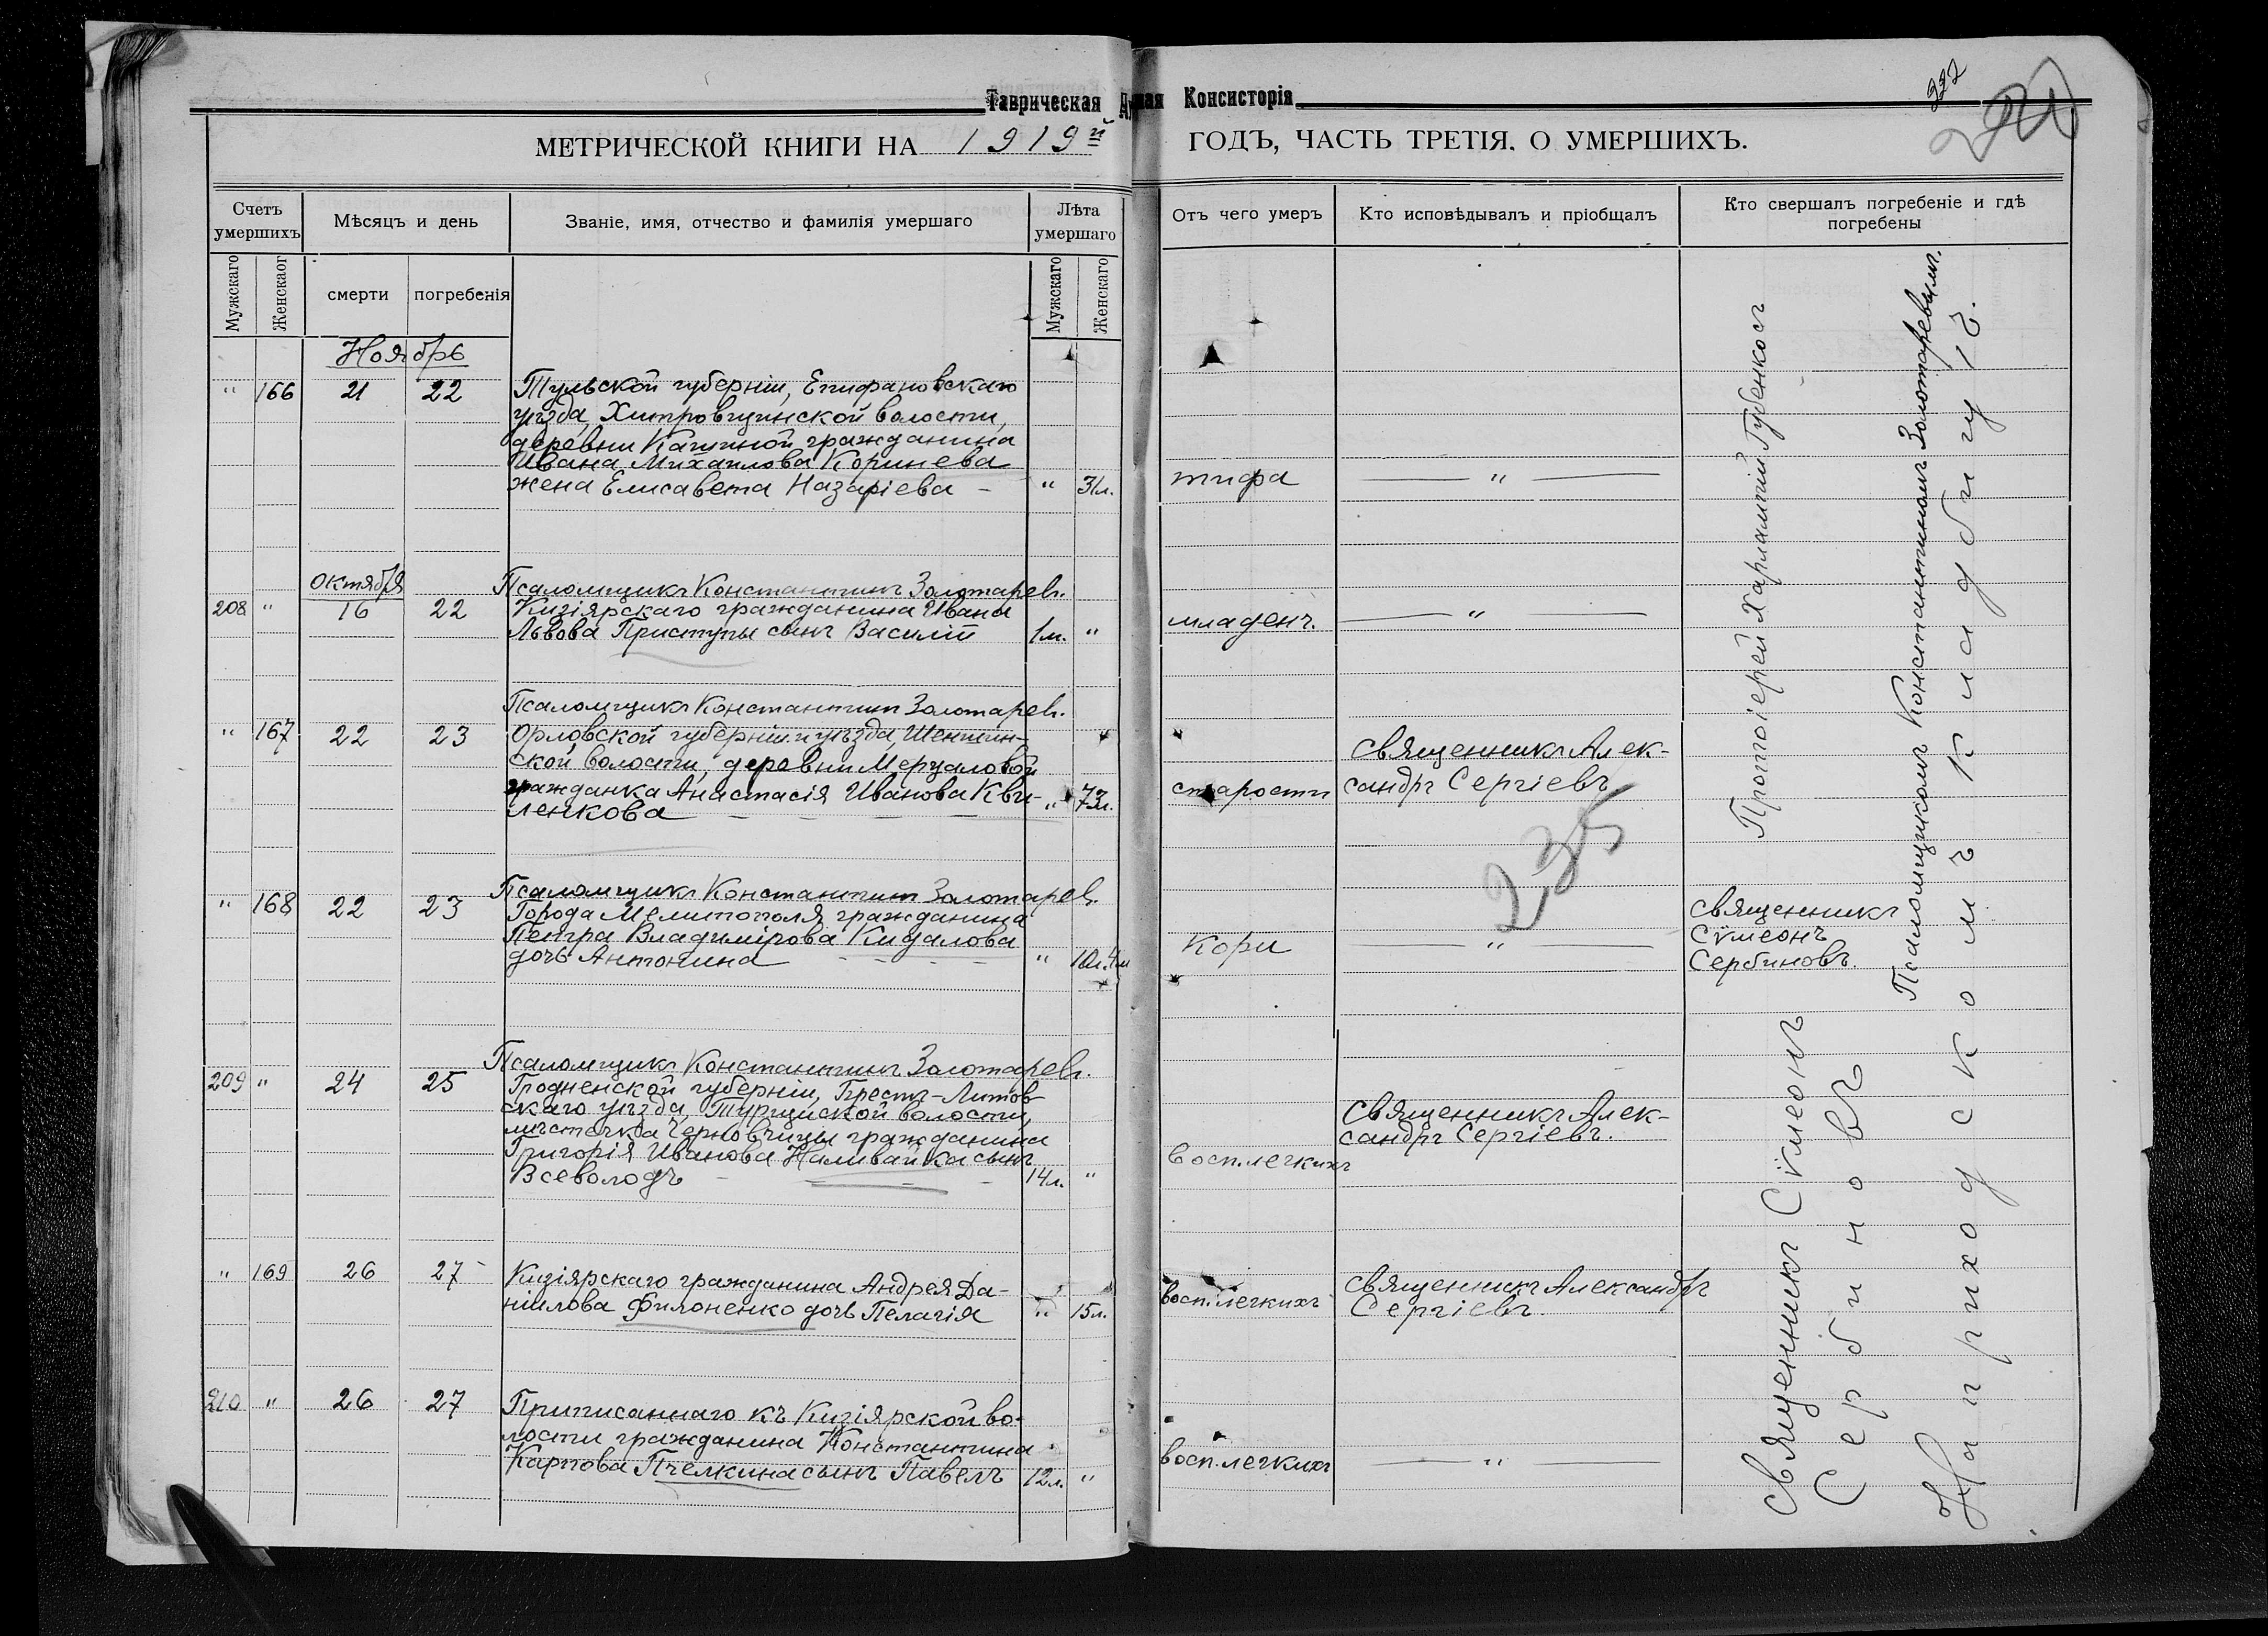 Таврическая Духовная Консисторія
222
МЕТРИЧЕСКОЙ КНИГИ НА 1919й ГОДЪ, ЧАСТЬ ТРЕТІЯ. О УМЕРШИХЪ.
Счетъ умершихъ
Мѣсяцъ и день
Званіе, имя, отчество и фамилія умершаго
Лѣта умершаго
Отъ чего умеръ
Кто исповѣдывалъ и пріобщалъ
Кто свершалъ погребеніе и гдѣ погребены
Мужскаго
Женскаог
смерти
погребенія
Мужскаго
Женскаго
Ноябрь
" 166 21 22 Тульской губерніи, Епифановскаго
уѣзда, Хитровщинской волости,
деревни гражданина
Ивана Михаилова Коринева
жена Елисавета Назаріева - " 31л. тифа — " —
Псаломщикъ Константинъ Золотаревъ.
Октября
208 " 16 22 Кизіярскаго гражданина Ивана
Львова Приступы сынъ Василій 1м. " младенч. — " —
Псаломщикъ Константинъ Золотаревъ.
" 167 22 23 Орловской губерніи и уѣзда, Шеншин-
ской волости, деревни Мерцаловой
гражданка Анастасія Иванова Кви-
ленкова " 73л. старости Священникъ Алек-
сандръ Сергіевъ
235
Псаломщикъ Константинъ Золотаревъ.
" 168 22 23 Города Мелитополя гражданина
Петра Владимірова Кидалова
дочь Антонина " 10л.4м кори — " —
Священникъ
Сѵмеонъ
Сербиновъ.
Псаломщикъ Константинъ Золотаревъ.
209 " 24 25 Гродненской губерніи, Брестъ-Литов-
скаго уѣзда, волости,
мѣстечка Черновчицы гражданина
Григорія Иванова Наливайка сынъ
Всеволодъ 14л. " восп.легкихъ
Священникъ Алек-
сандръ Сергіевъ.
" 169 26 27 Кизіярскаго гражданина Андрея Да-
ніилова Филоненко дочь Пелагія " 15л. восп.легкихъ
Священникъ Александръ
Сергіевъ.
210 " 26 27 Приписаннаго къ Кизіярской во-
лости гражданина Константина
Карпова Пчелкина сынъ Павелъ 12л. " восп.легкихъ — " —
Протоіерей Харлампій Губенкосъ
Священникъ Сѵмеонъ
Сербиновъ
Псаломщикомъ Константиномъ Золотаревымъ.
На приходскомъ кладбищѣ.